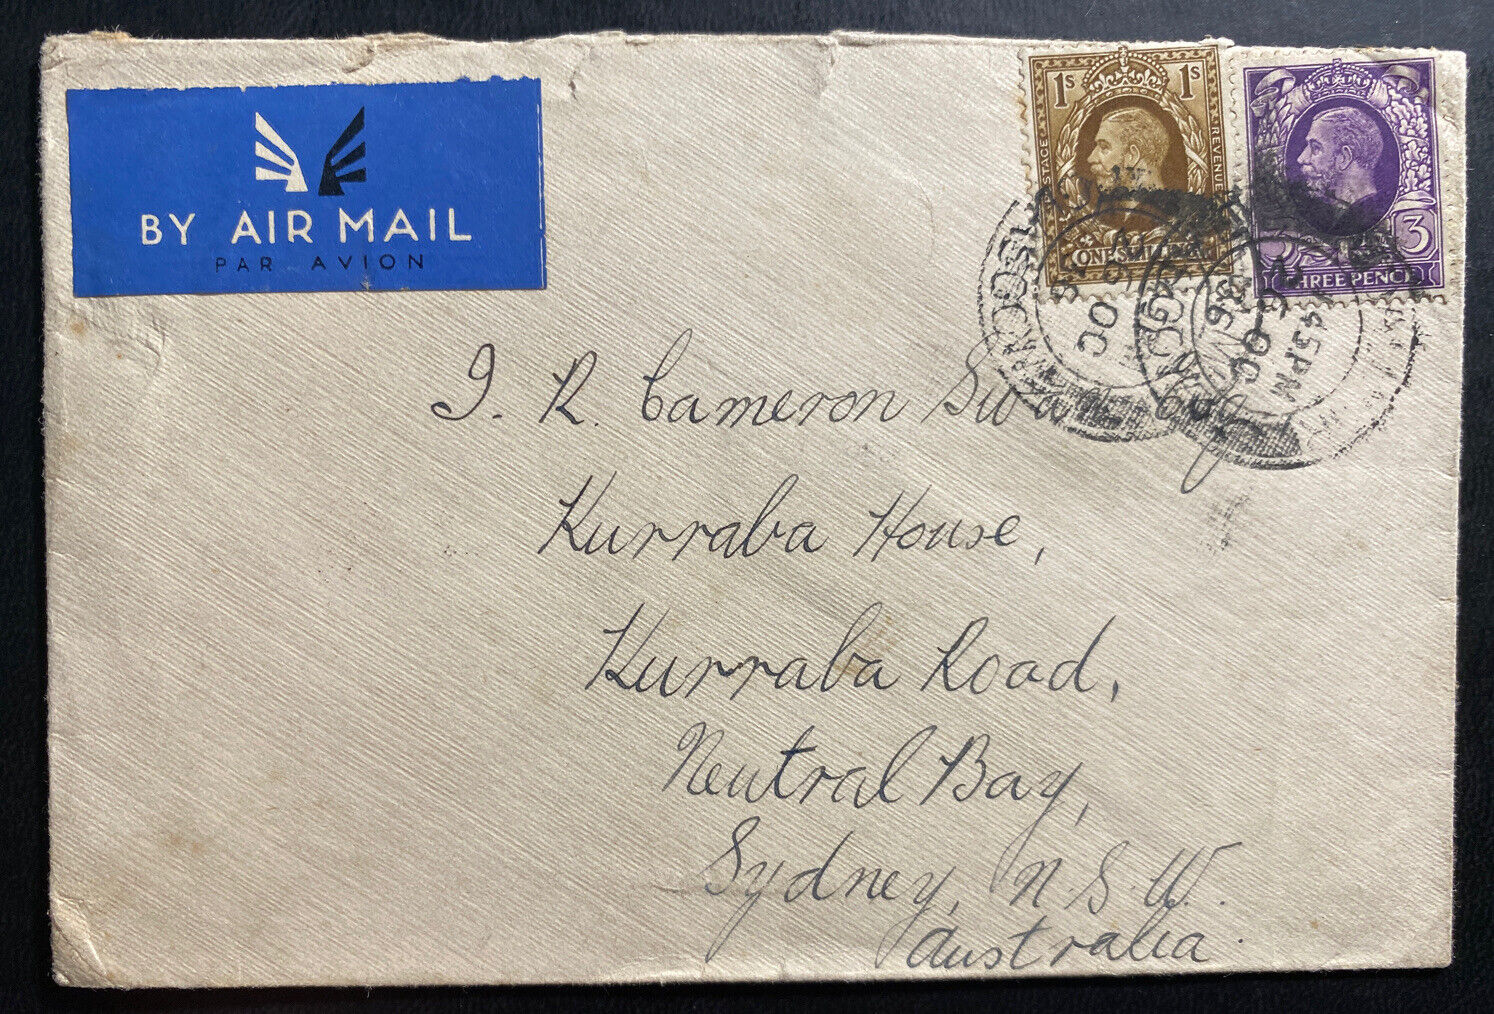 BY AIR MAIL
PAR AVION
1s 1s
POSTAGE REVENUE
ONE SHILLING
3
THREE PENCE
45PM
OC
36
OC
J. R. Cameron Swan Esq
Kurraba House,
Kurraba Road,
Neutral Bay,
Sydney, N.S.W.
Australia.